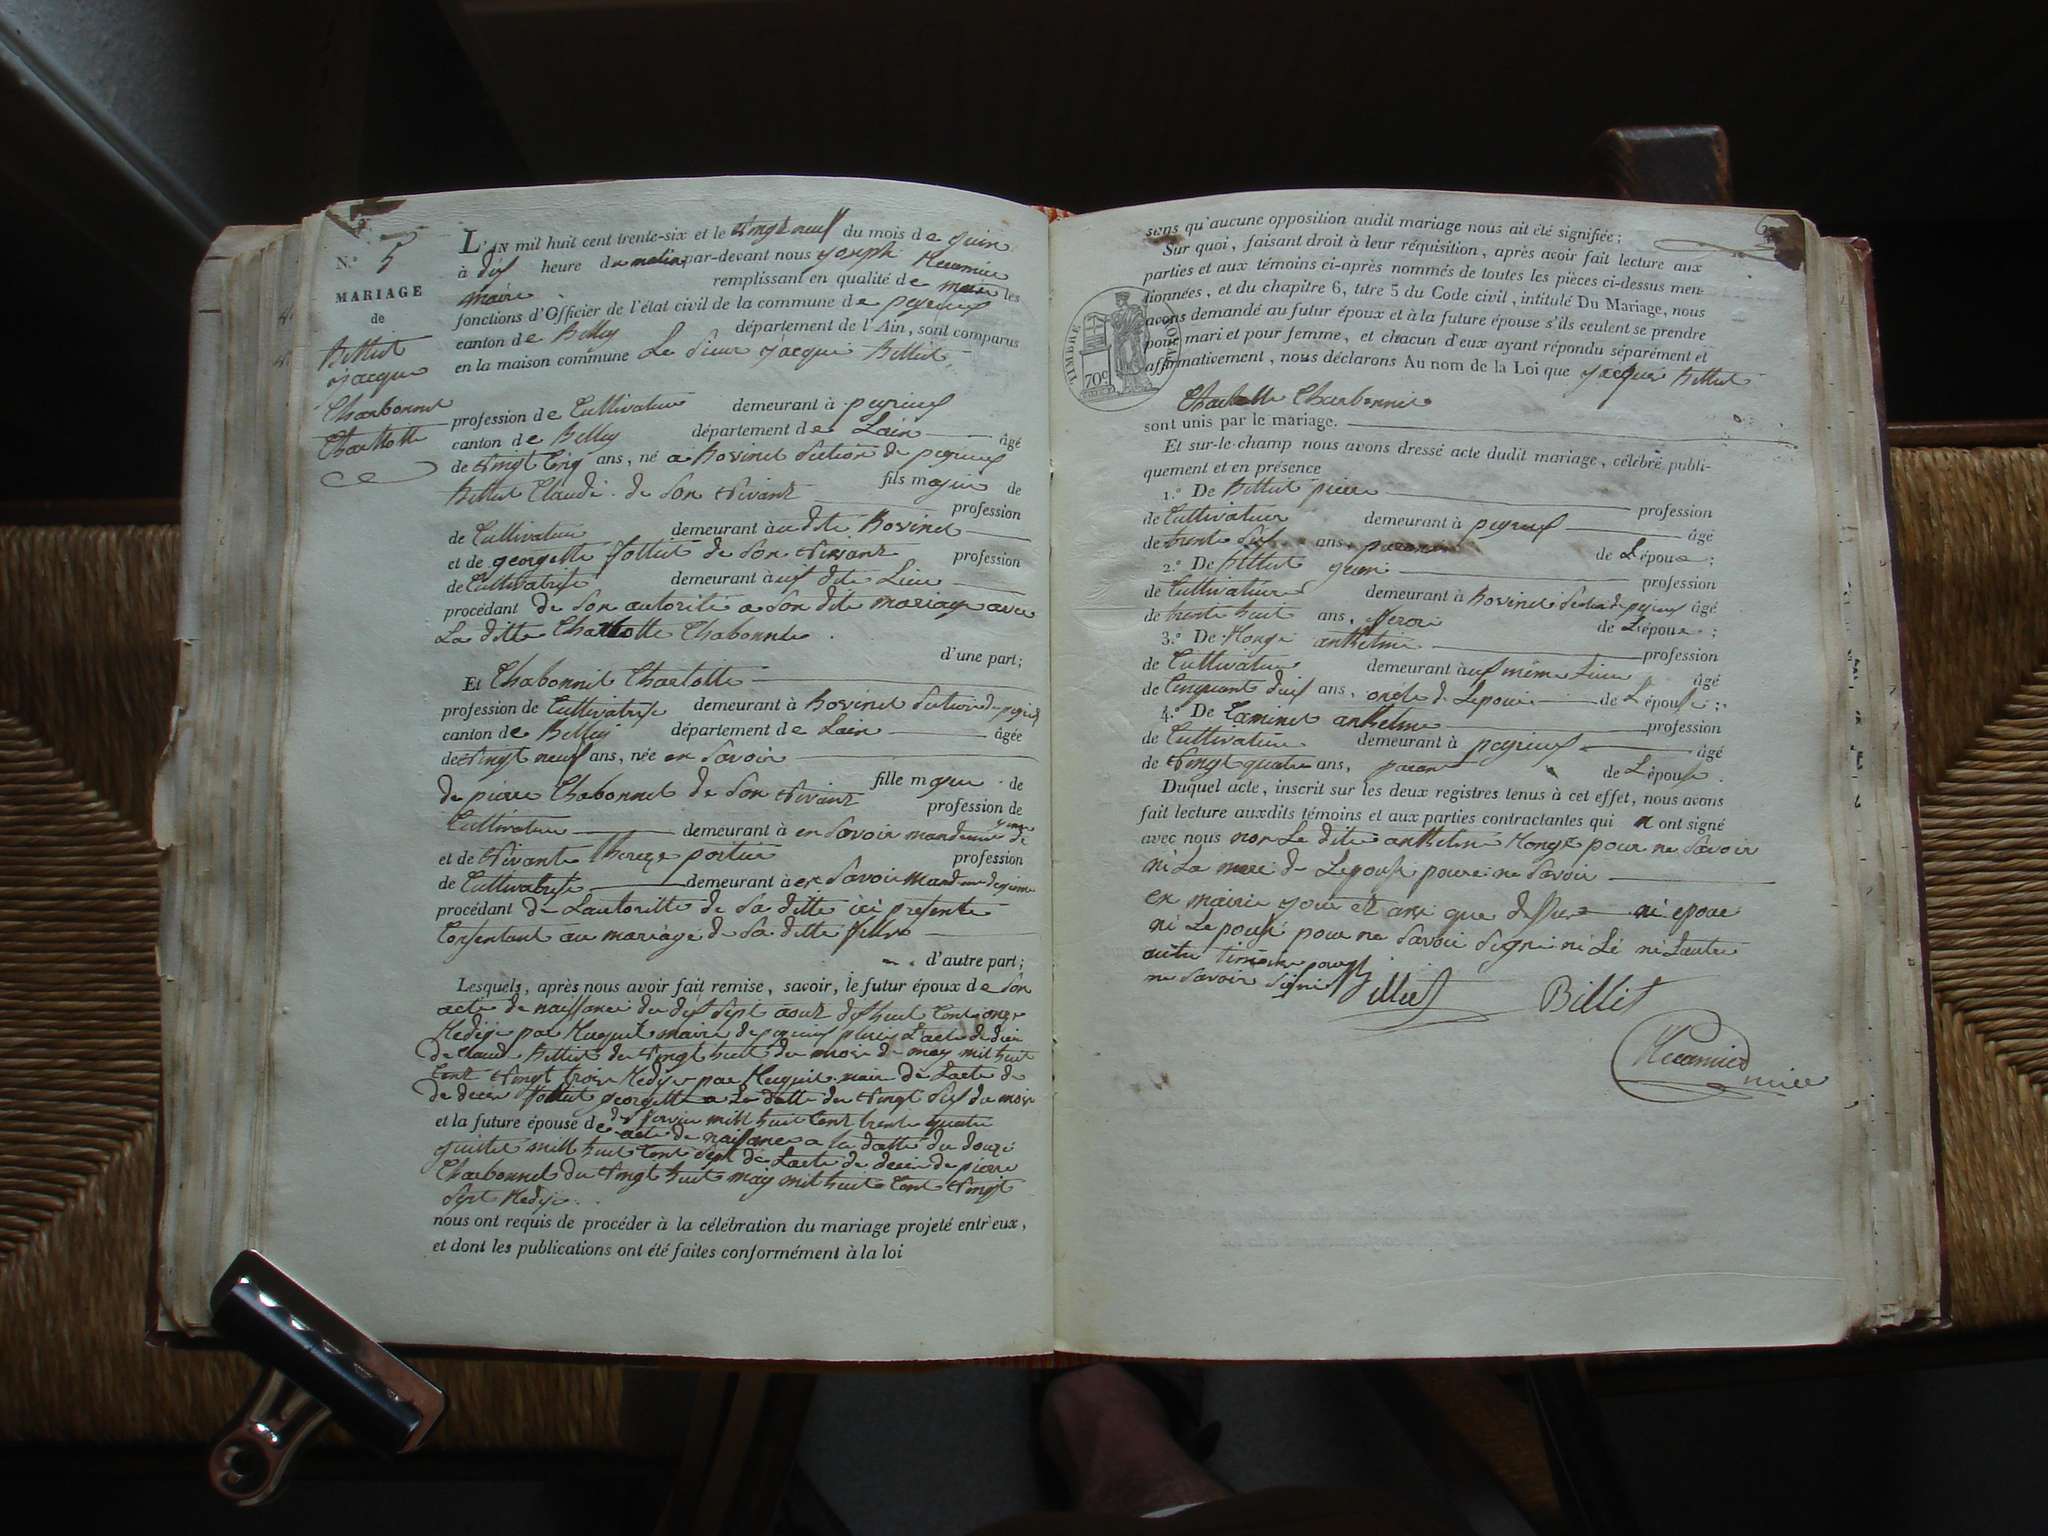 N.o 5
MARIAGE
de
Billiet
Jacque
Charbonnet
Charlotte
L'AN mil huit cent trente-six et le vingt neuf du mois de juin
à dix heure du matin par-devant nous joseph Recamier
maire remplissant en qualité de maire les
fonctions d'Officier de l'état civil de la commune de peyrieux
canton de Belley département de l'Ain, sont comparus
en la maison commune Le Sieur Jacque Billiet
profession de Cultivateur demeurant à peyrieux
canton de Belley département de Lain âgé
de vingt cinq ans, né a Rovinet Section de peyrieux
fils majeur de
Billiet Claude de Son vivant profession
de Cultivateur demeurant audit Rovinet
et de georgette de Son vivant profession
de Cultivatrise demeurant audit Lieu
procédant de Son autorité a Son dit mariage avec
La ditte Charlotte Chabonnet
d'une part;
Et Chabonnet Charlotte
profession de Cultivatrise demeurant à Rovinet Section de peyrieux
canton de Belley département de Lain âgée
de vingt neuf ans, née en Savoie
fille majeure de
de pierre Chabonnet de Son vivant profession de
Cultivateur demeurant à en Savoie mandement de
et de vivante therese portier profession
de Cultivatrise demeurant à en Savoie
procédant de Lautoritte de Sa ditte ici presente
Consentant au mariage de Sa ditte fille
d'autre part;
Lesquels, après nous avoir fait remise, savoir, le futur époux de Son
acte de naissance du dix Sept aout dix huit Cent onze
Redigé par Huguet maire de peyrieux plus L'acte de décé
de Claude Billiet du vingt huit du mois de may mil huit
Cent vingt trois Redigé par Huguet maire de Lacte de
de décé georgette a La datte du vingt Six du mois
de mill huit Cent trente quatre
et la future épouse de acte de naissance a la datte du douze
juillet mill huit Cent Sept de Lacte de décé de pierre
Charbonnet du vingt huit may mil huit Cent vingt
Sept Redigé
nous ont requis de procéder à la célébration du mariage projeté entr'eux,
et dont les publications ont été faites conformément à la loi
sans qu'aucune opposition audit mariage nous ait été signifiée;
Sur quoi, faisant droit à leur réquisition, après avoir fait lecture aux
parties et aux témoins ci-après nommés de toutes les pièces ci-dessus men-
tionnées, et du chapitre 6, titre 5 du Code civil, intitulé Du Mariage, nous
avons demandé au futur époux et à la future épouse s'ils veulent se prendre
pour mari et pour femme, et chacun d'eux ayant répondu séparément et
affirmativement, nous déclarons Au nom de la Loi que Jacque Billiet
TIMBRE ROYAL
70c
Charlotte Charbonnet
sont unis par le mariage.
Et sur-le-champ nous avons dressé acte dudit mariage, célébré publi-
quement et en présence
1.o De Billiet pierre profession
de Cultivateur demeurant à peyrieux âgé
de trente Six ans, parent de Lépoux;
2.o De Billiet profession
de Cultivateur demeurant à Rovinet Section de peyrieux âgé
de trente huit ans, frere de Lépoux;
3.o De Monge anthelme profession
de Cultivateur demeurant au même Lieu âgé
de Cinquant dix ans, oncle de Lepouse de Lépouse;
4.o De Caminet anthelme profession
de Cultivateur demeurant à peyrieux âgé
de vingt quatre ans, parent de Lépouse.
Duquel acte, inscrit sur les deux registres tenus à cet effet, nous avons
fait lecture auxdits témoins et aux parties contractantes qui n ont signé
avec nous non Le dit anthelme Monge pour ne Savoir
ni La mere de Lepouse pour ne Savoir
en mairie jour et an que dessus ni epoux
ni Lepouse pour ne Savoir Signe ni Li ni Lautre
autre timoin pour
ne Savoir Signé Billiet Billiet
Recamier
maire